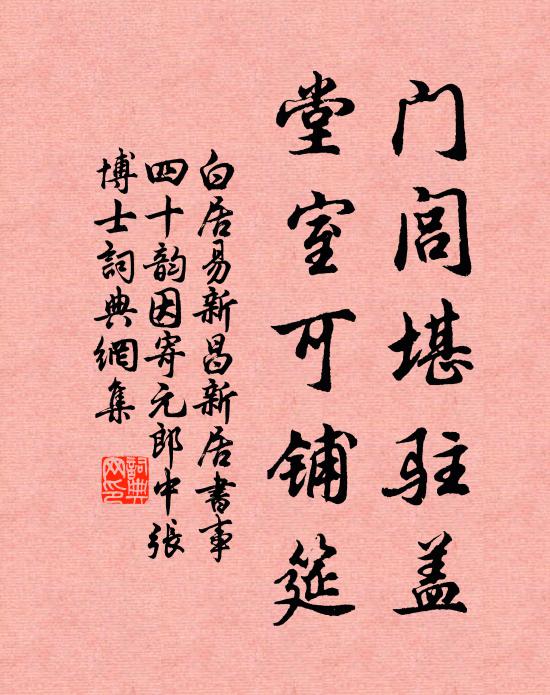 门闾堪驻盖
堂室可铺筵
白居易新昌新居书事
四十韵因寄元郎中张
博士词典網集
詞典
网印